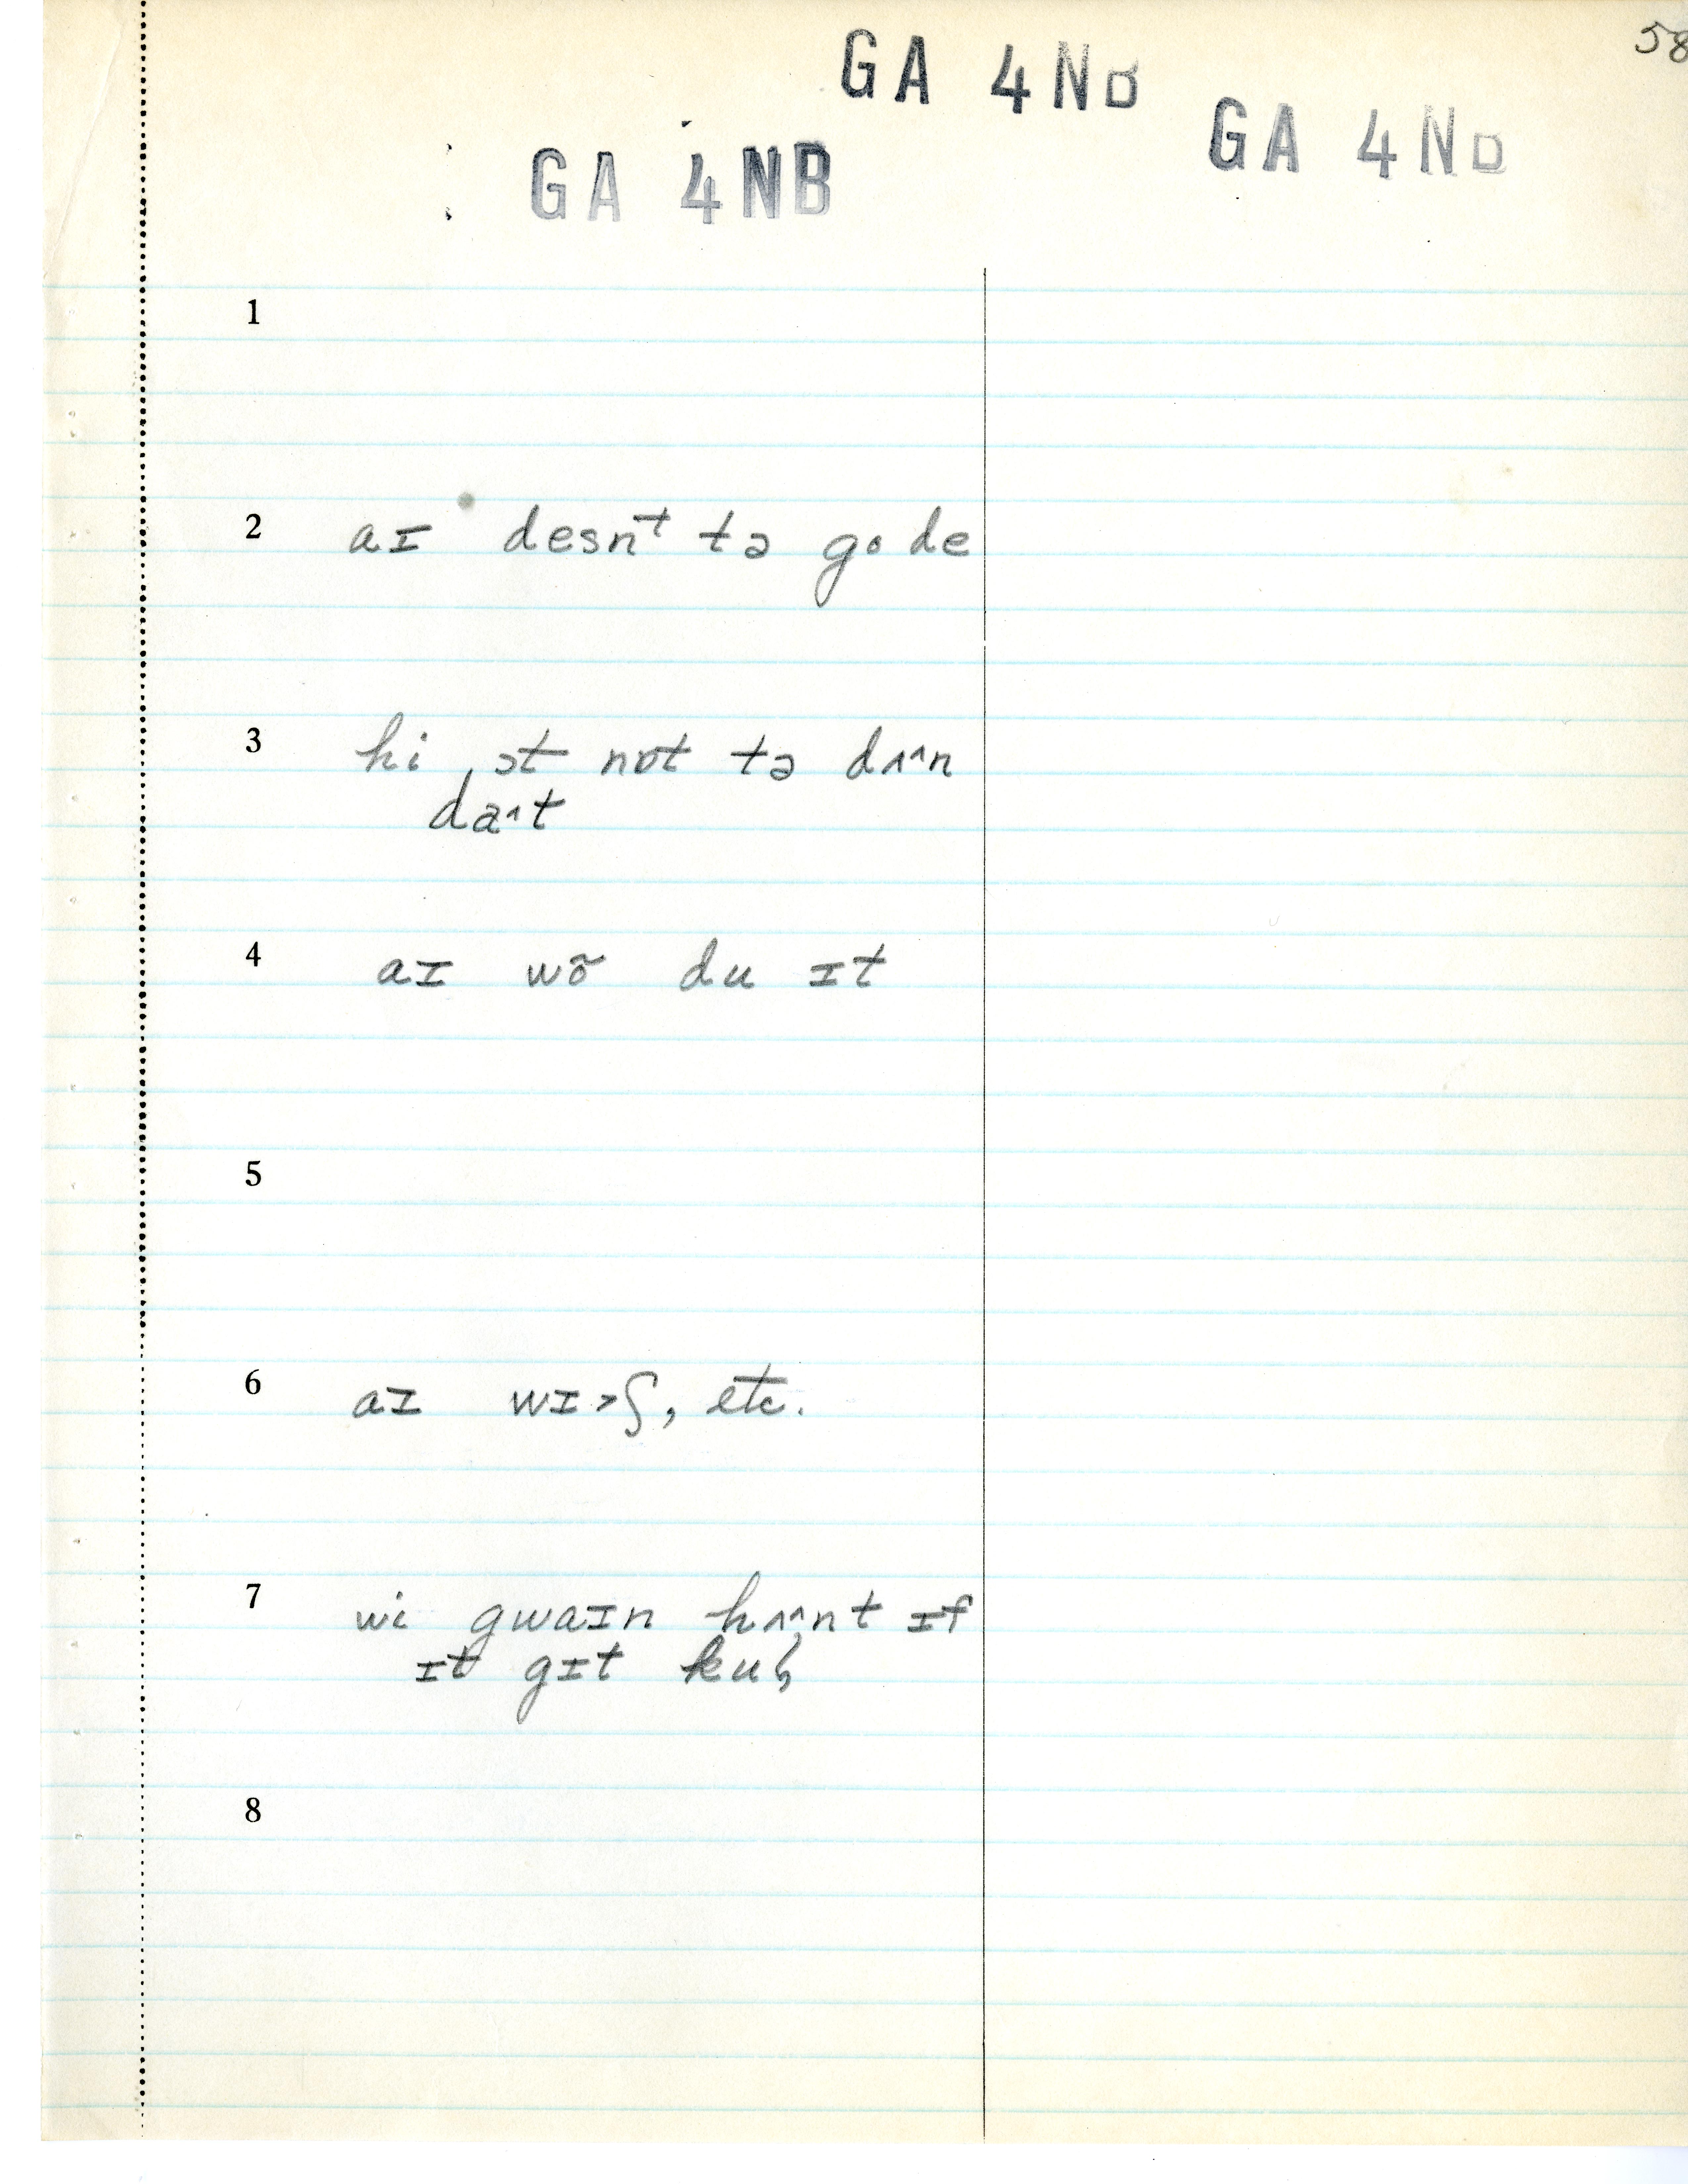 58
GA 4NB
GA 4NB
GA 4NB
1
2 aɪ desnᵗ tə go de
3 hi ɔt nɒt tə dʌ^n
da^t
4 aɪ wõ du ɪt
5
6 aɪ wɪ>ʃ, etc.
7 wi gwaɪn hʌ^nt ɪf
ɪt gɪt
8